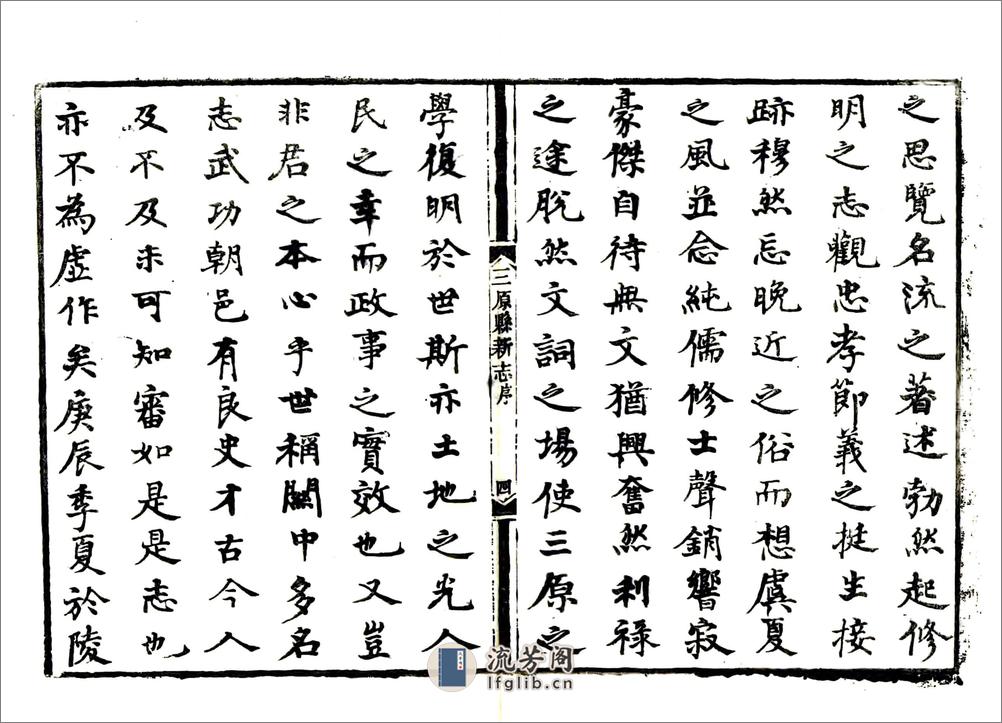 之思覽名流之著述勃然起修
明之志觀忠孝節義之挺生接
跡穆然忘晚近之俗而想虞夏
之風並念純儒修士聲銷響寂
豪傑自待無文猶興奮然利祿
之途脫然文詞之場使三原之
三原縣新志序
四
學復明於世斯亦土地之光人
民之幸而政事之實效也又豈
非君之本心乎世稱關中多名
志武功朝邑有良史才古今人
及不及未可知審如是是志也
亦不為虛作矣庚辰季夏於陵
流芳阁
lfglib.cn